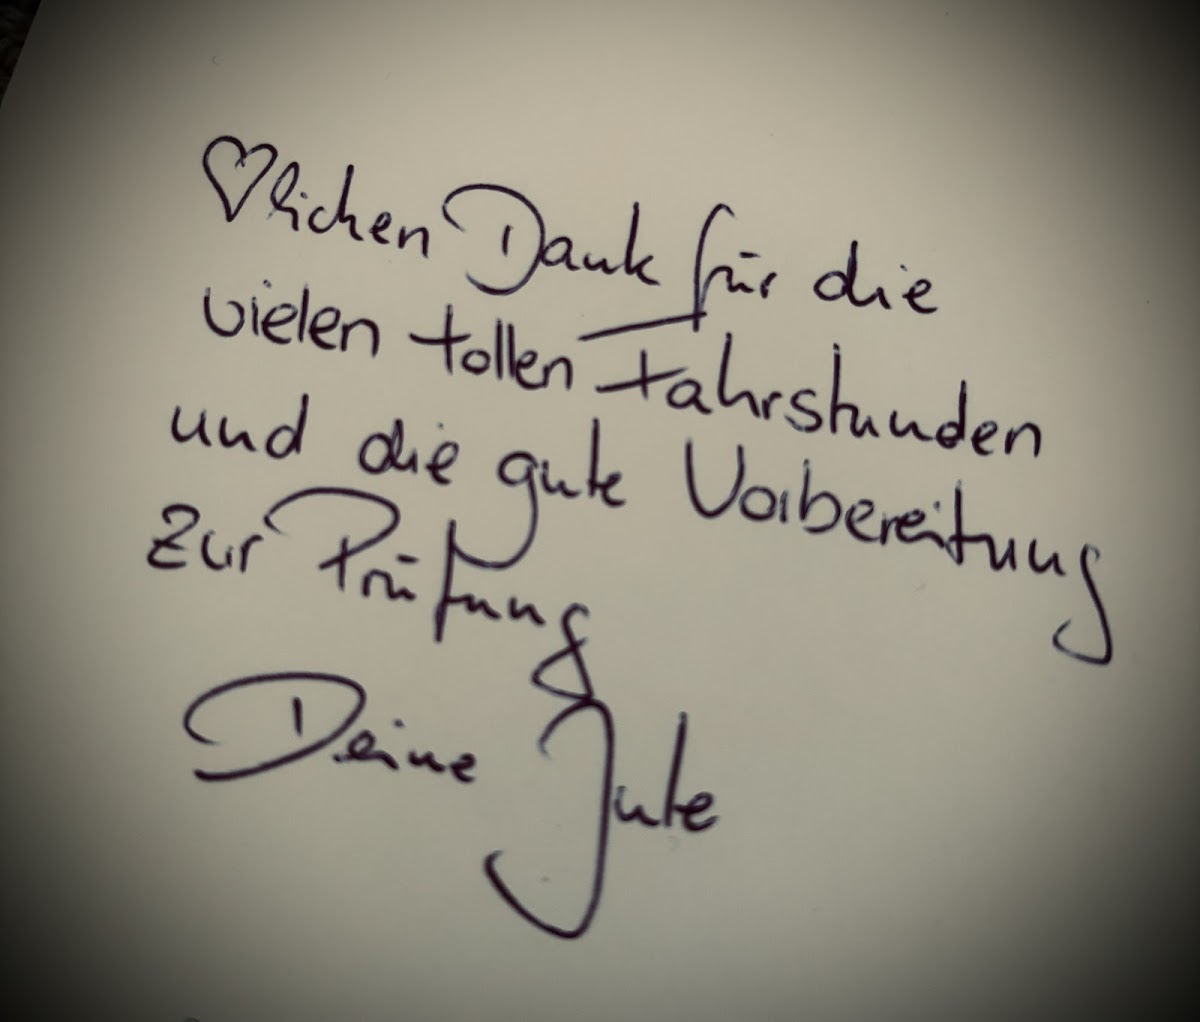 ♡lichen Dank für die
vielen tollen Fahrstunden
und die gute Vorbereitung
zur Prüfung
Deine Jute